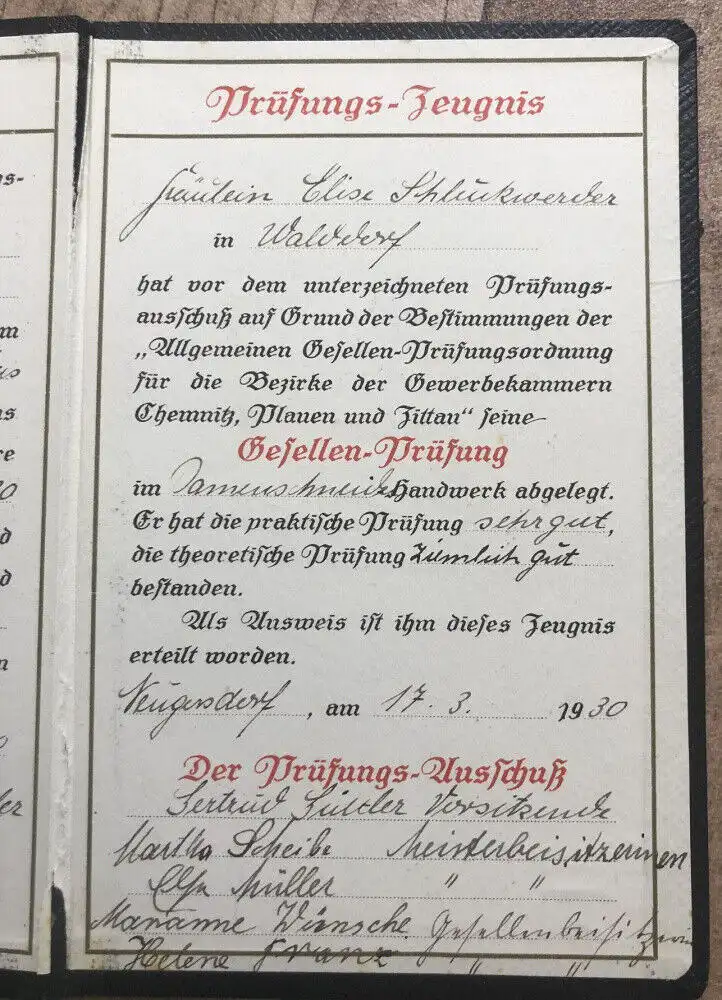 Prüfungs-Zeugnis
Fräulein Elise Schluckwerder
in Walddorf
hat vor dem unterzeichneten Prüfungs-
ausschuß auf Grund der Bestimmungen der
„Allgemeinen Gesellen-Prüfungsordnung
für die Bezirke der Gewerbekammern
Chemnitz, Plauen und Zittau“ seine
Gesellen-Prüfung
im Damenschneider Handwerk abgelegt.
Er hat die praktische Prüfung sehr gut,
die theoretische Prüfung ziemlich gut
bestanden.
Als Ausweis ist ihm dieses Zeugnis
erteilt worden.
Neugersdorf, am 17. 3. 1930
Der Prüfungs-Ausschuß
Gertrud Vorsitzende
Martha Scheibe Meisterbeisitzerinnen
Elsa Müller " "
Marianne Wünsche Gesellenbeisitzerin
Helene Franz " "